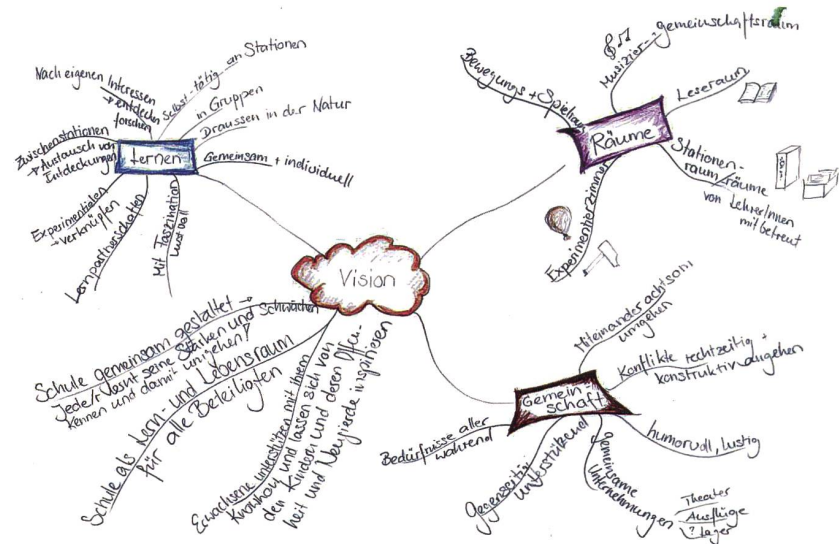 Vision
Lernen
Nach eigenen Interessen
→ entdecken
forschen
Selbst-tätig an Stationen
in Gruppen
Draussen in der Natur
Gemeinsam + individuell
Mit Faszination
Lustvoll
Lernpartnerschaften
Experimentieren
→ verknüpfen
Zwischenstationen
→ Austausch von
Entdeckungen
Räume
Bewegungs + Spielraum
Musizier-
gemeinschaftsraum
Leseraum
Stationen-
raum/räume
von LehrerInnen
mitbetreut
Experimentierzimmer
Gemein-
schaft
Miteinander achtsam
umgehen
Konflikte rechtzeitig +
konstruktiv angehen
humorvoll, lustig
gemeinsame
Unternehmungen
Theater
Ausflüge
? Lager
Gegenseitig
unterstützend
Bedürfnisse aller
während
Schule gemeinsam gestaltet →
Jede/r kennt seine Stärken und Schwächen
kennen und damit umgehen!
Schule als Lern- und Lebensraum
für alle Beteiligten
Erwachsene unterstützen mit ihrem
Knowhow und lassen sich von
den Kindern und deren Offen-
heit und Neugierde inspirieren